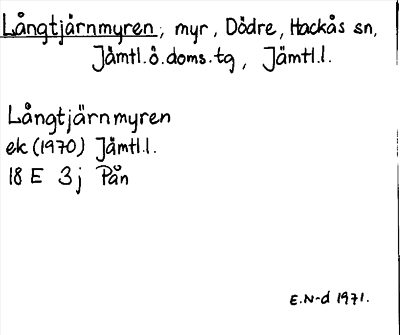 Långtjärnmyren, myr, Dödre, Hackås sn,
Jämtl.ö.doms.tg, Jämtl.l.
Långtjärnmyren
ek (1970) Jämtl.l.
18 E 3j Pån
E.N-d 1971.